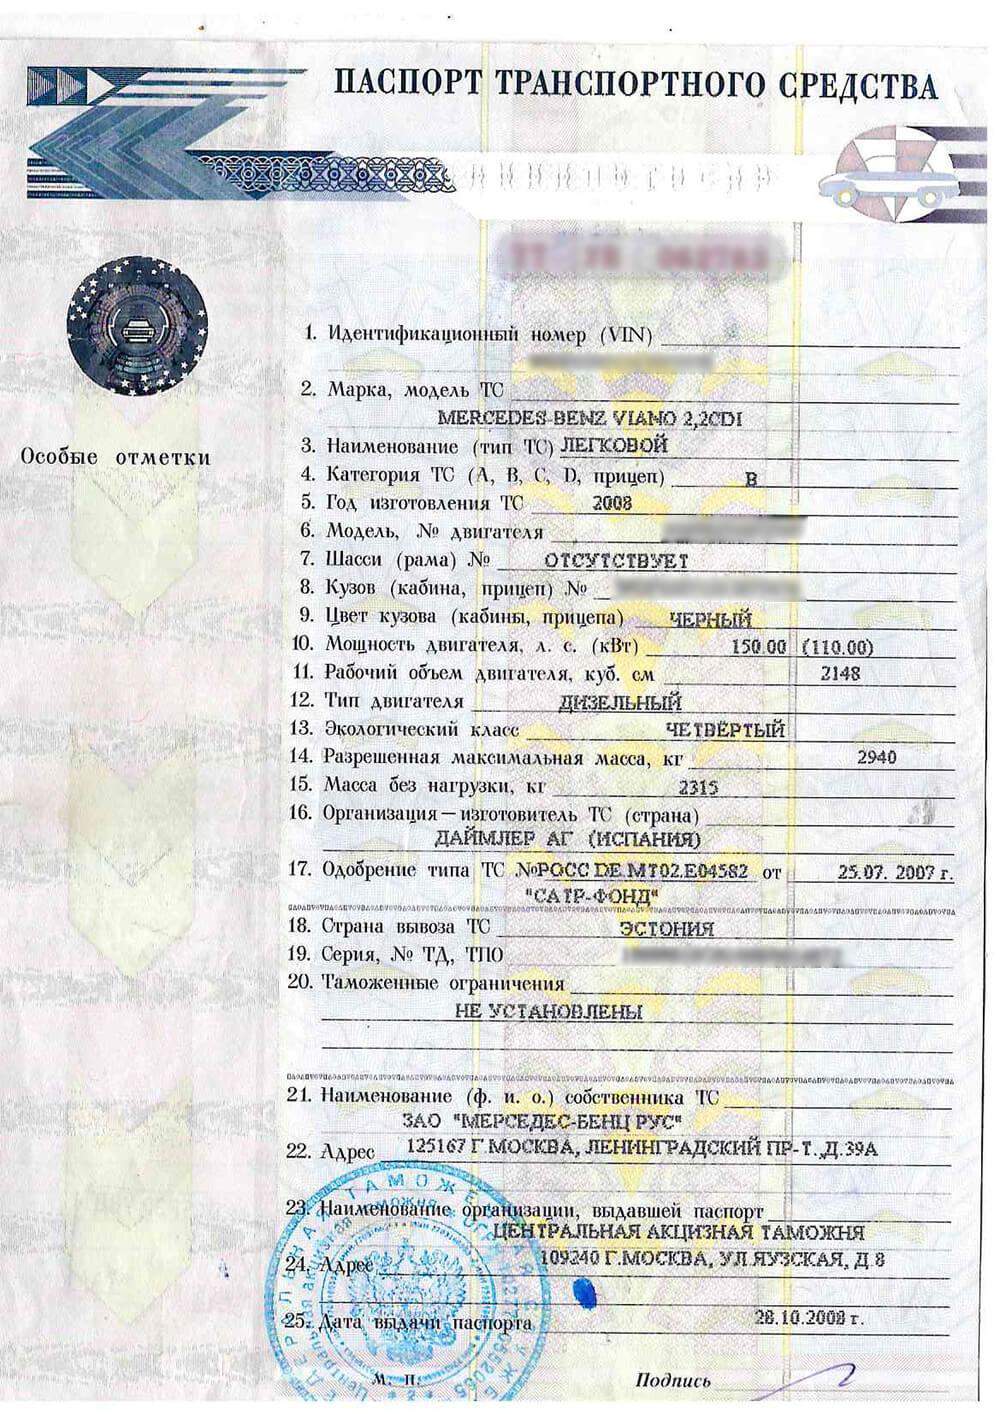 ПАСПОРТ ТРАНСПОРТНОГО СРЕДСТВА
1. Идентификационный номер (VIN)
2. Марка, модель ТС
MERCEDES-BENZ VIANO 2,2CDI
Особые отметки
3. Наименование (тип ТС) ЛЕГКОВОЙ
4. Категория ТС (А, В, С, D, прицеп) В
5. Год изготовления ТС 2008
6. Модель, № двигателя
7. Шасси (рама) № ОТСУТСТВУЕТ
8. Кузов (кабина, прицеп) №
9. Цвет кузова (кабины, прицепа) ЧЕРНЫЙ
10. Мощность двигателя, л. с. (кВт) 150.00 (110.00)
11. Рабочий объем двигателя, куб. см 2148
12. Тип двигателя ДИЗЕЛЬНЫЙ
13. Экологический класс ЧЕТВЁРТЫЙ
14. Разрешенная максимальная масса, кг 2940
15. Масса без нагрузки, кг 2315
16. Организация — изготовитель ТС (страна)
ДАЙМЛЕР АГ (ИСПАНИЯ)
17. Одобрение типа ТС №РОСС DE.MT02.E04582 от 25.07. 2007 г.
"САТР-ФОНД"
18. Страна вывоза ТС ЭСТОНИЯ
19. Серия, № ТД, ТПО
20. Таможенные ограничения
НЕ УСТАНОВЛЕНЫ
21. Наименование (ф. и. о.) собственника ТС
ЗАО "МЕРСЕДЕС-БЕНЦ РУС"
22. Адрес 125167 Г.МОСКВА, ЛЕНИНГРАДСКИЙ ПР-Т.,Д.39А
23. Наименование организации, выдавшей паспорт
ЦЕНТРАЛЬНАЯ АКЦИЗНАЯ ТАМОЖНЯ
24. Адрес 109240 Г.МОСКВА, УЛ.ЯУЗСКАЯ, Д.8
25. Дата выдачи паспорта 28.10.2008 г.
М. П. Подпись